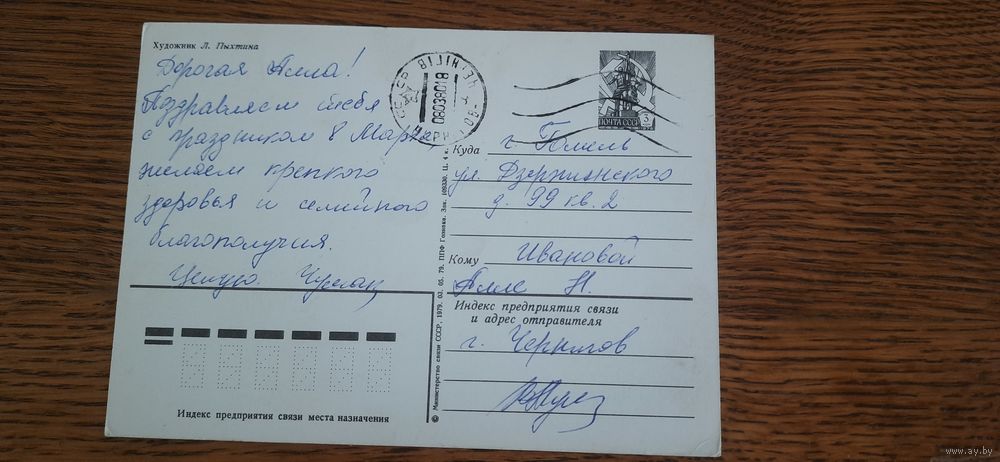 Художник Л. Пыхтина
Дорогая Алла!
Поздравляем тебя
с праздником 8 Марта
желаем крепкого
здоровья и семейного
благополучия.
Целую.
ЧЕРНІГІВ
08038018
ПОЧТА СССР
3
Куда г. Гомель
ул. Дзержинского
д. 99 кв. 2
Кому Ивановой
Алле Н.
Индекс предприятия связи
и адрес отправителя
г. Чернигов
Индекс предприятия связи места назначения
© Министерство связи СССР, 1979. 03. 05. 79. ППФ Гознака. Зак. 109330. Ц. 4 к.
www.ay.by